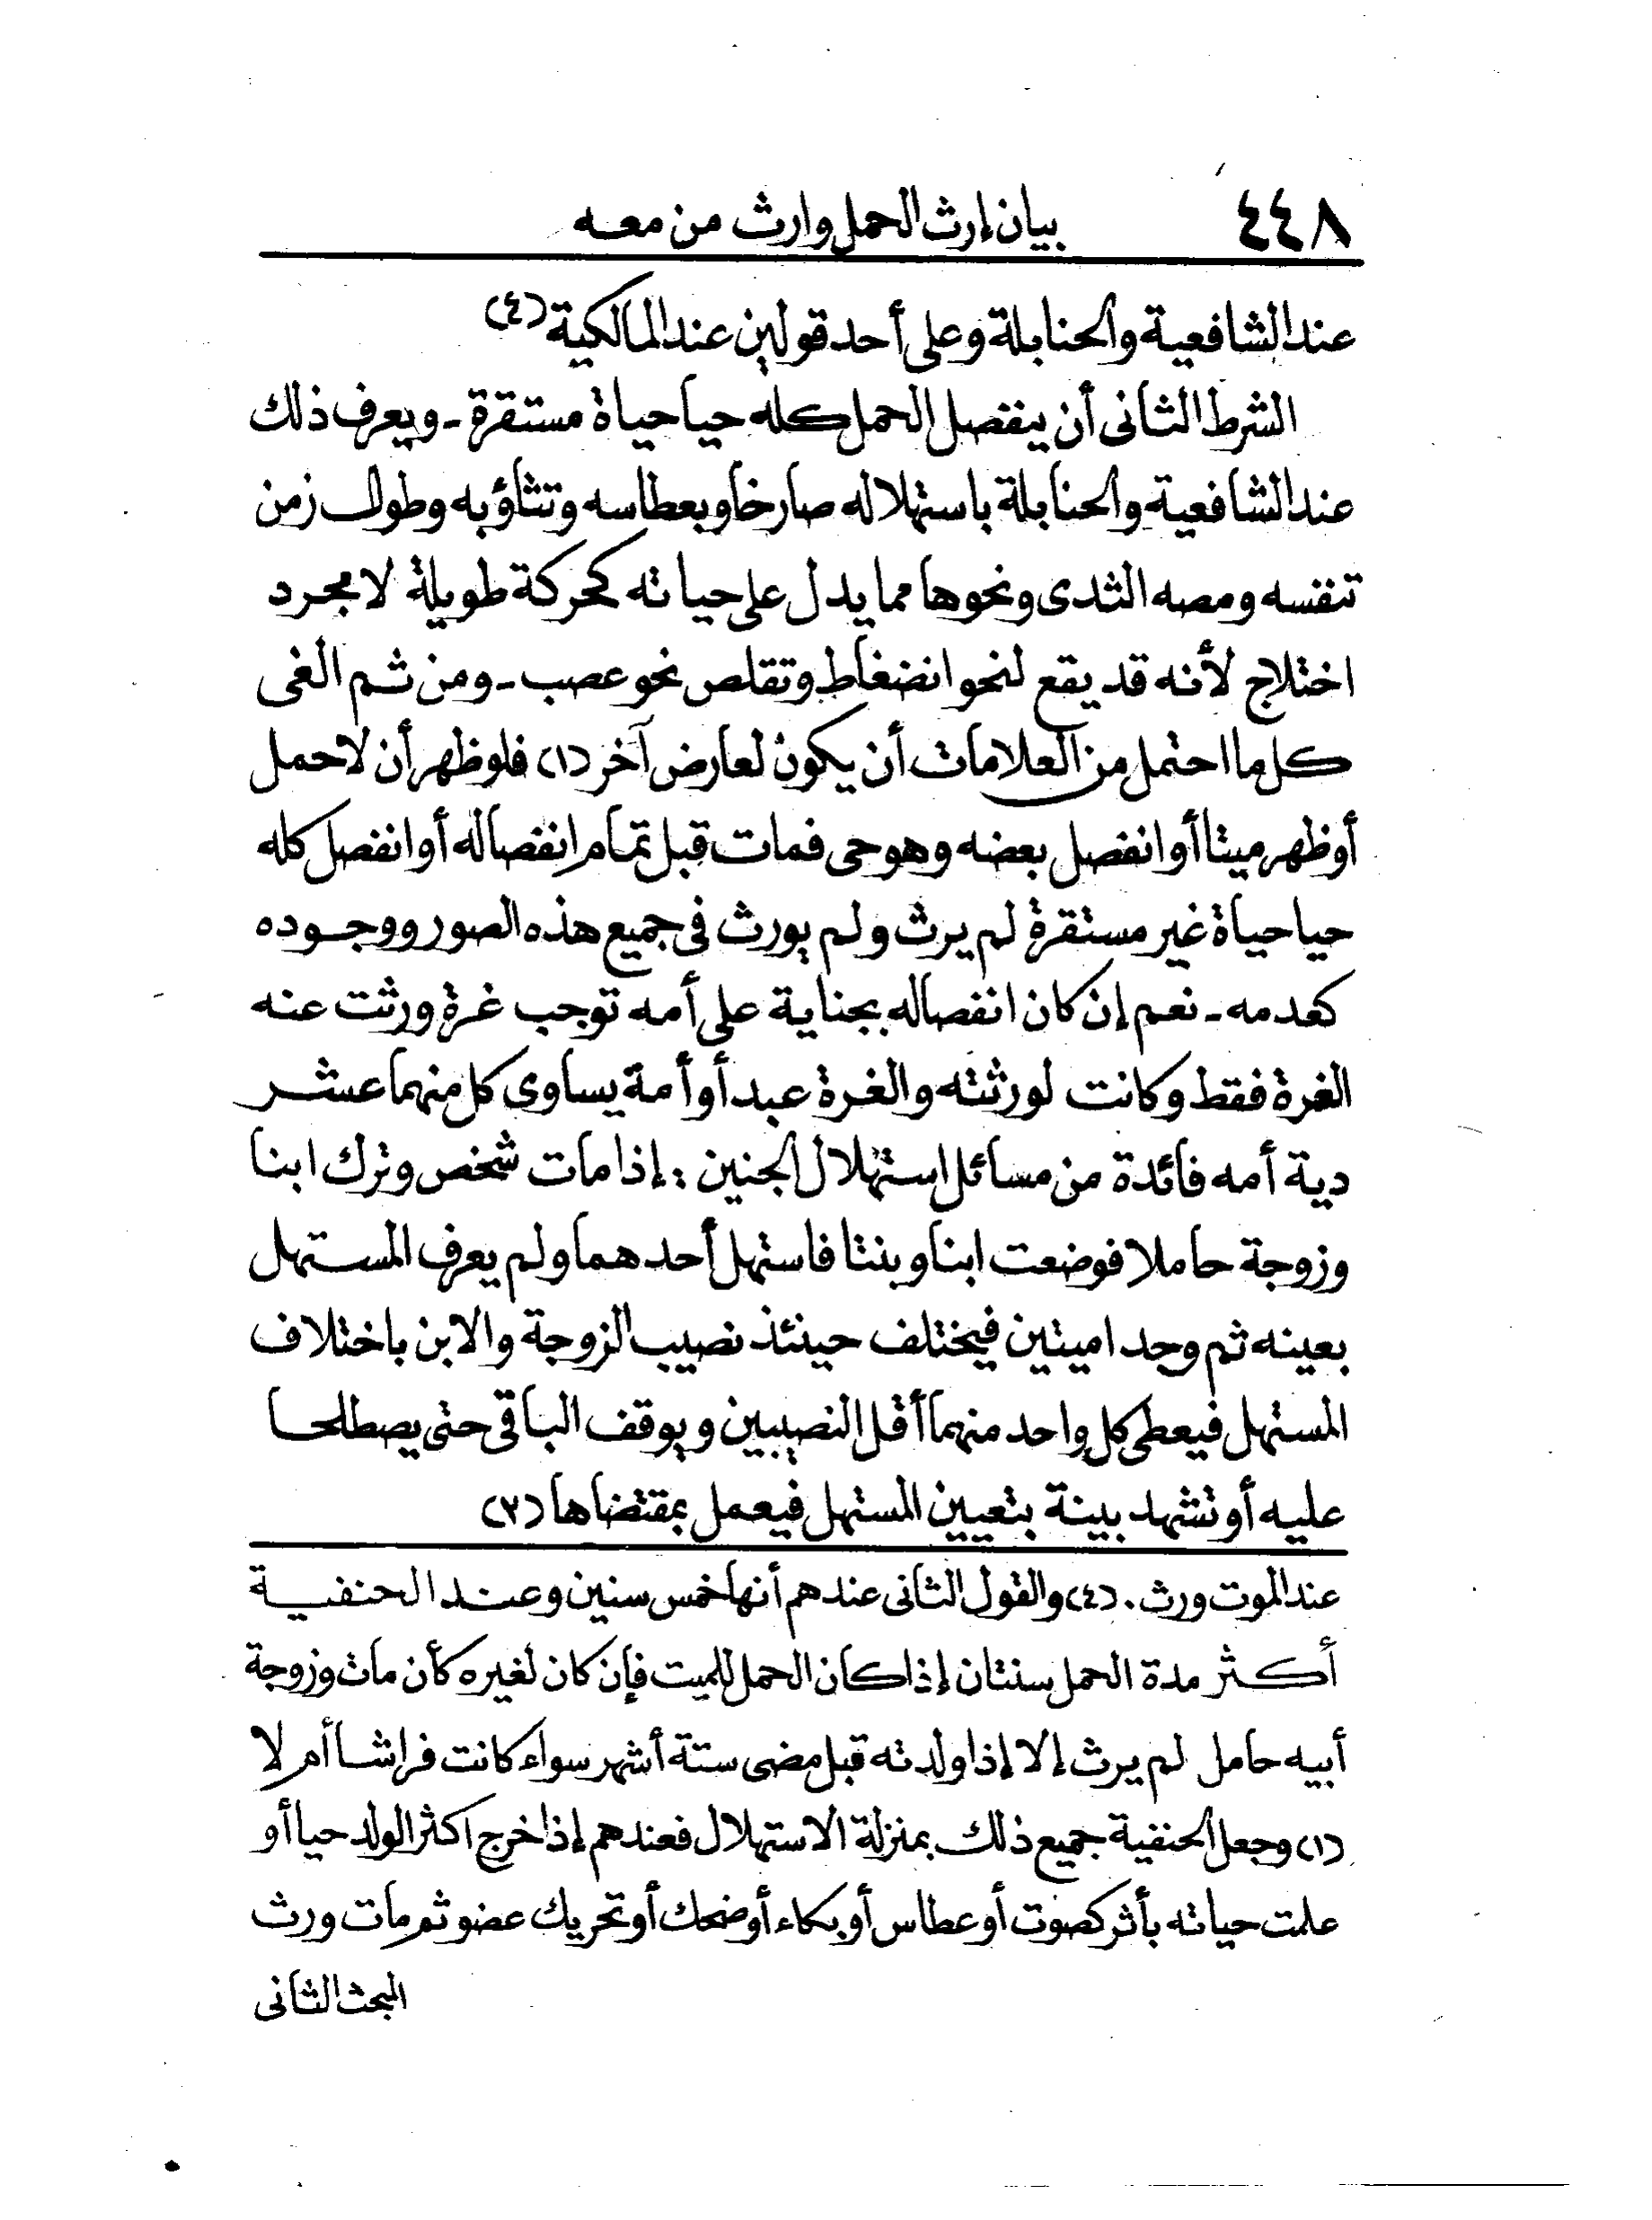 ٤٤٨ بيان إرث الحمل وارث من معه
عند الشافعية والحنابلة وعلى أحد قولين عند المالكية (٤)
الشرط الثانى أن ينفصل الحمل كله حيا حياة مستقرة - ويعرف ذلك
عند الشافعية والحنابلة باستهلاله صارخا وبعطاسه وتثاؤبه وطول زمن
تنفسه ومصه الثدى ونحوها مما يدل على حياته كحركة طويلة لا مجرد
اختلاج لأنه قد يقع لنحو انضغاط وتقلص نحو عصب - ومن ثم الغى
كل ما احتمل من العلامات أن يكون لعارض آخر (١) فلو ظهر أن لا حمل
أو ظهر ميتا أو انفصل بعضه وهو حى فمات قبل تمام انفصاله أو انفصل كله
حيا حياة غير مستقرة لم يرث ولم يورث فى جميع هذه الصور ووجوده
كعدمه - نعم إن كان انفصاله بجناية على أمه توجب غرة ورثت عنه
الغرة فقط وكانت لورثته والغرة عبد أو أمة يساوى كل منهما عشر
دية أمه فائدة من مسائل استهلال الجنين : إذا مات شخص وترك ابنا
وزوجة حاملا فوضعت ابنا وبنتا فاستهل أحدهما ولم يعرف المستهل
بعينه ثم وجدا ميتين فيختلف حينئذ نصيب الزوجة والابن باختلاف
المستهل فيعطى كل واحد منهما أقل النصيبين ويوقف الباقى حتى يصطلحا
عليه أو تشهد بينة بتعيين المستهل فيعمل بمقتضاها (٢)
عند الموت ورث . (٤) والقول الثانى عندهم أنها خمس سنين وعند الحنفية
أكثر مدة الحمل سنتان إذا كان الحمل للميت فإن كان لغيره كأن مات وزوجة
أبيه حامل لم يرث إلا إذا ولدته قبل مضى ستة أشهر سواء كانت فراشا أم لا
(١) وجعل الحنفية جميع ذلك بمنزلة الاستهلال فعندهم إذا خرج اكثر الولد حيا أو
علمت حياته بأثر كصوت أو عطاس أو بكاء أو ضحك أو تحريك عضو ثم مات ورث
المبحث الثانى